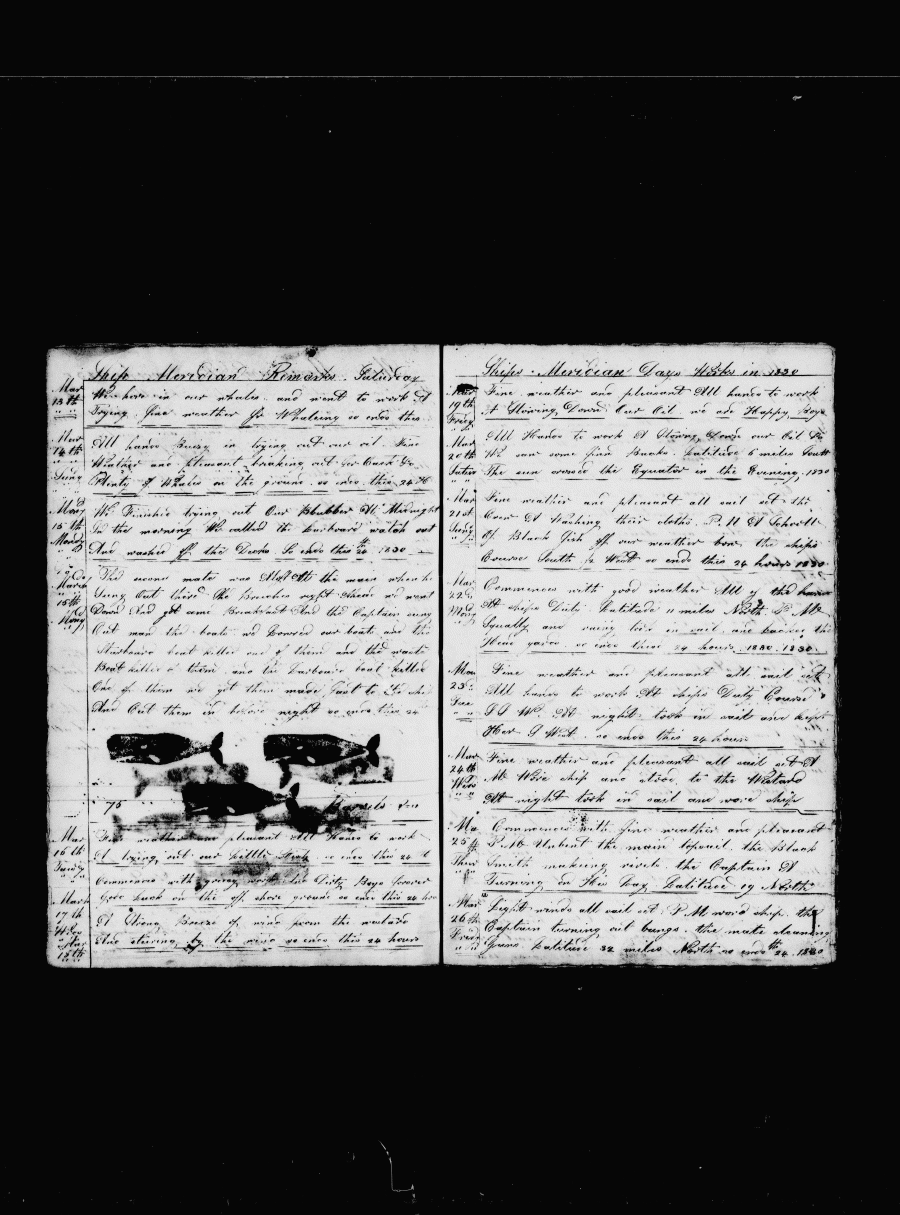 Ship Meridian Remarks Saturday
Mar
13th
our whales and went to work A
Trying. fine weather for Whaleing so ends this
Mar
14th
Sund
All hands Buisy in trying out our oil. Fine
Weather and pleasant, braking out for Cask &c
Plenty of Whales on the ground. so ends this 24
15th
Monday
We Finishd trying out Our Blubber At Midnight
In the morning We called the Larboard watch out
And washed off the Decks. So ends this 24th 1830
March
15th
Mony
The second mate was Aloft At the main when he
Sung Out there She Breaches right Ahead we went
Down And got some Breakfast And the Captain sung
Out man the boats we Lowered our boats and the
Starboard boat killed one of them and the waist
Boat killed of them and the Larboard boat killed
One of them we got them made fast to the ship
And Cut them in before night so ends this 24
75 Barrels
Mar
16th
Tusdy
Fine weather and pleasant All Hands to work
A trying out our so ends this 24
March
17th
Commences with work the Dirty Boys forever
Good luck on the off shore ground so ends this 24 hou
18th
A Strong Breeze of wind from the westard
And steering by the wind so ends this 24 hours
Ships Meridian Days Works in 1830
Mar
19th
Fridy
Fine weather and pleasant All hands to work
A Stowing Down Our Oil we are Happy Boys
Mar
20th
Satur
All Hands to work A Stowing Down our Oil
We saw some fin Backs. Latitude 5 miles South
The sun crossed the Equator in the Evening. 1830
Mar
21st
Sundy
Fine weather and pleasant all sail set the
Crew A Washing their cloths. P.M A School
Of Black fish off our weather bow. the ships
Course South ½ West so ends this 24 hours 1830
Mar
22d
Mony
Commences with good weather All the hands
At ships Duty Latitude 11 miles North P M
Squally and rainy took in sail, and backed the
Head yards so ends these 24 hours. 1830. 1830.
Mar
23d
Tue
Fine weather and pleasant all sail set
All hands to work At ships Duty Course
S S W. At night took in sail and kept
Her S West. so ends this 24 hours
Mar
24th
Wens
Fine weather and pleasant all sail set A
M Wore ship and stood to the Westard
At night took in sail and wore ship
Ma
25th
Thur
Commences with fine weather and pleasant
P M Unbent the main topsail. the Black
Smith making rivets the Captain A
Turning in His Day Latitude 19 North
Mar
26th
Fridy
Light winds all sail set P.M ward ship. the
Captain turning oil bungs. the mate cleaning
Guns Latitude 32 miles North so ends th 24. 1830